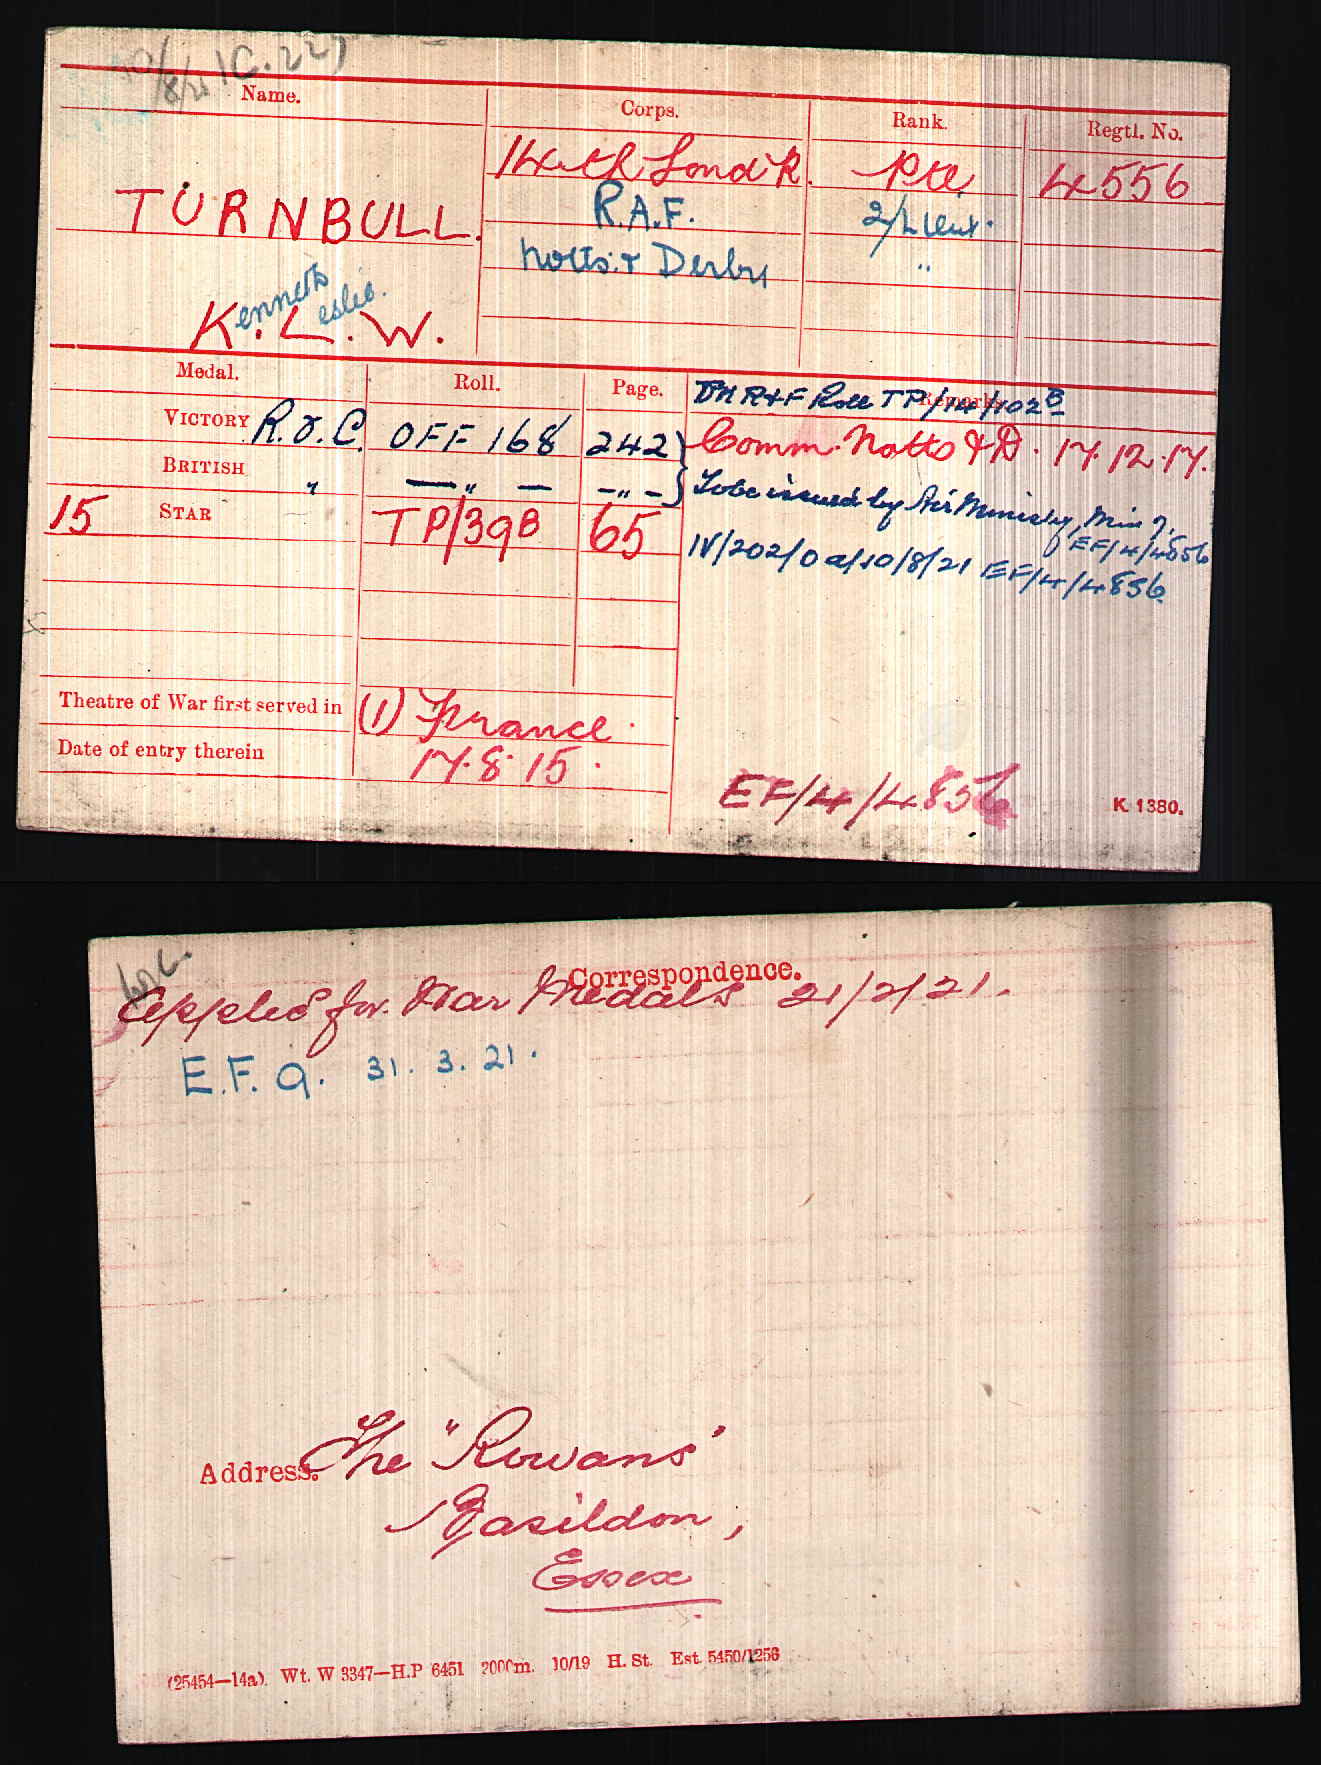 10/8/21 IC.227
Name. Corps. Rank. Regtl. No.
14th Lond R. Pte 4556
TURNBULL. R.A.F. 2/Lieut.
Notts. & Derby "
Kenneth Leslie W.
Medal. Roll. Page. Remarks.
On R & F Roll TP/14/102B
VICTORY R.D.C. OFF 168 242 Comm. Notts & D. 17.12.17.
BRITISH " — " — - " - To be issued by Air Ministry, Min 7, EF/4/4856
15 STAR TP/39B 65 IV/202/0 d/10/8/21 EF/4/4856
Theatre of War first served in (1) France.
Date of entry therein 17.8.15.
EF/4/4856 K. 1380.
Correspondence.
Applied for War Medals 21/2/21.
E.F.9. 31.3.21.
Address. The "Rowans"
Basildon,
Essex
(25454—14a). Wt. W 3347—H.P 6451 2000m. 10/19 H. St. Est. 5450/1256